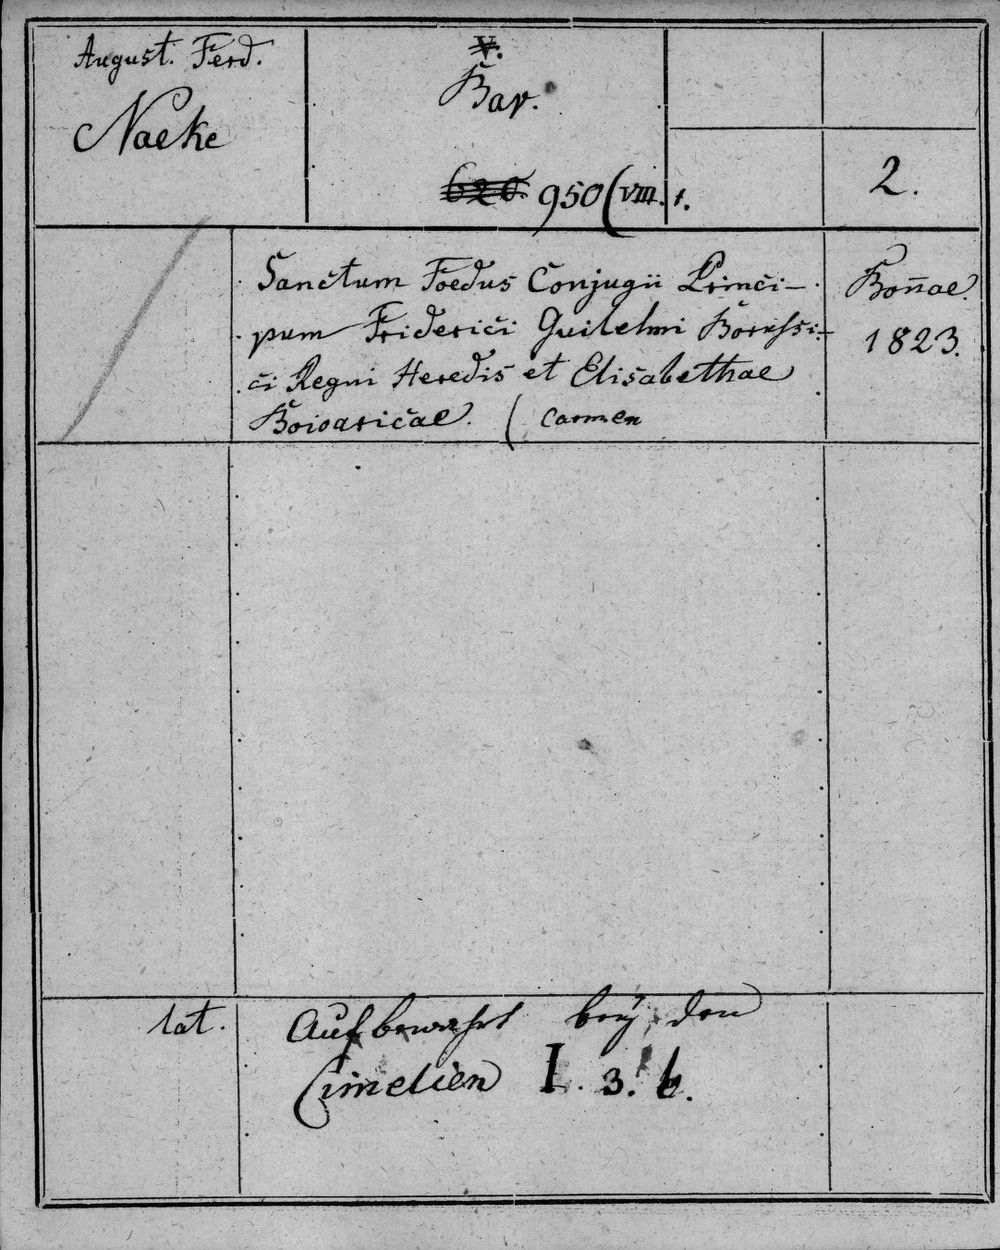 August. Ferd.
Naeke
V.
Bav.
620. 950 (VIII. 1.
2.
Sanctum Foedus Conjugii Princi-
pum Friderici Guilelmi Borussi-
ci Regni Heredis et Elisabethae
Boioaricae. ( Carmen
Bon̄ae.
1823.
lat.
Aufbewahrt beÿ den
Cimelien I. 3. b.